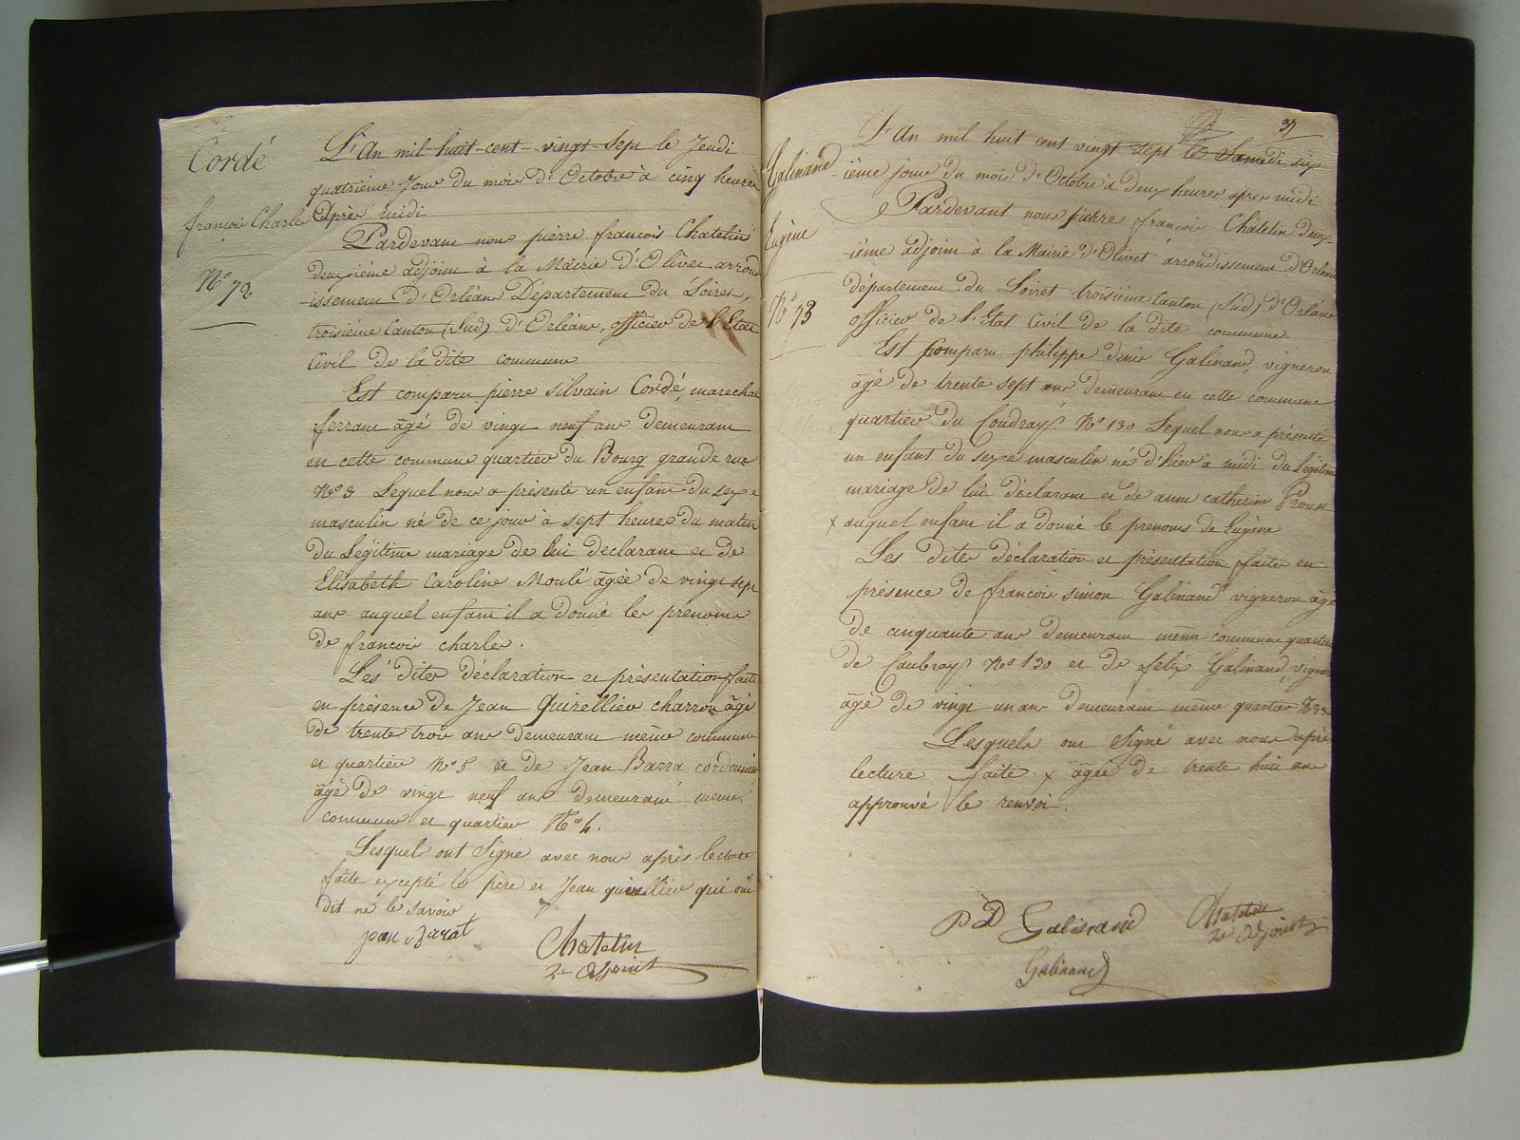 Cordé
françois Charle
N° 72
L'An mil huit-cent-vingt-Sept le Jeudi
quatrième Jour du mois d'Octobre à cinq heures
Après midi
Pardevant nous pierre françois Chatelin
deuxième adjoint à la Mairie d'Olivet arrond
issement d'Orléans Département du Loiret,
troisième Canton (Sud) d'Orléans, officier de l'Etat
Civil de la dite commune
Est comparu pierre silvain Cordé, marechal
ferrant âgé de vingt neuf ans demeurant
en cette commune quartier du Bourg grande rue
N° 8 Lequel nous a présenté un enfant du sexe
masculin né de ce jour à sept heures du matin
du Légitime mariage de lui déclarant et de
Elisabeth Caroline Moulé âgée de vingt sept
ans auquel enfant il a donné les prenoms
de francois charles.
Les dites déclaration et présentation faite
en présence de Jean Quirellier charron âgé
de trente trois ans demeurant même commune
et quartier N° 5 et de Jean Barra cordonnier
âgé de vingt neuf ans demeurant meme
commune et quartier N° 4.
Lesquels ont Signé avec nous après lecture
faite excepté le père et Jean quirellier qui ont
dit ne le savoir
jean Barat
Chatelin
2e adjoint
37
Galinand
Eugène
N° 73
L'An mil huit cent vingt Sept le Samedi six
ième jour du mois d'Octobre à deux heures apres midi
Pardevant nous pierre françois Chatelin deux-
ième adjoint à la Mairie d'Olivet arrondissement d'Orléans
département du Loiret troisième Canton (Sud) d'Orléans
officier de l'Etat Civil de la dite commune
Est Comparu philippe denis Galinand, vigneron
âgé de trente sept ans demeurant en cette commune
quartier du Coudray N° 130 Lequel nous a présenté
un enfant du sexe masculin né d'hier à midi du Légitime
mariage de lui déclarant et de anne catherine Proust
x auquel enfant il a donné le prenoms de Eugène
Les dites déclaration et présentation faites en
présence de françois simon Galinand vigneron âgé
de cinquante ans demeurant même commune quartier
de Caubray N° 130 et de felix Galinand, vigneron
âgé de vingt un ans demeurant meme quartier
Lesquels ont Signé avec nous après
lecture faite x âgée de trente huit ans
approuvé le renvoi.
P D Galinand
Chatelin
2e adjoint
Galinand